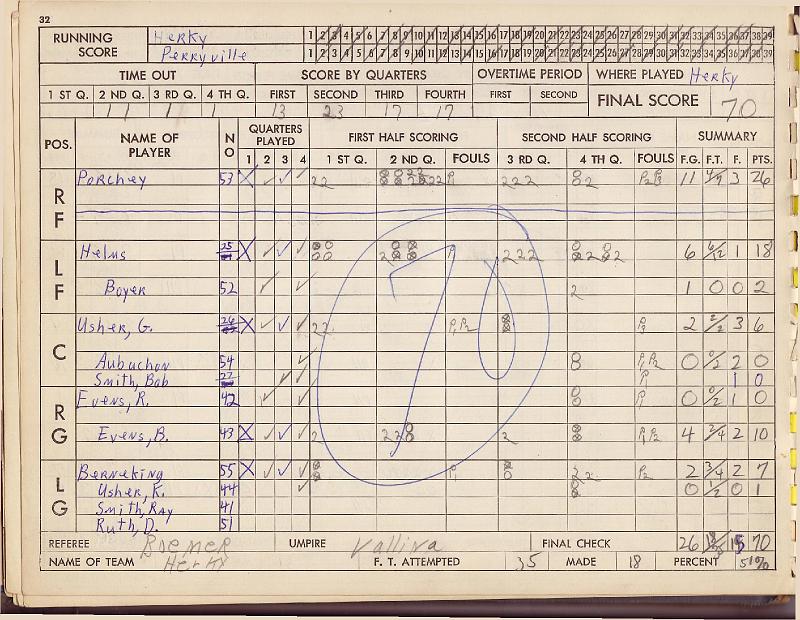 32
RUNNING SCORE Herky 1 2 3 4 5 6 7 8 9 10 11 12 13 14 15 16 17 18 19 20 21 22 23 24 25 26 27 28 29 30 31 32 33 34 35 36 37 38 39
Perryville 1 2 3 4 5 6 7 8 9 10 11 12 13 14 15 16 17 18 19 20 21 22 23 24 25 26 27 28 29 30 31 32 33 34 35 36 37 38 39
TIME OUT SCORE BY QUARTERS OVERTIME PERIOD WHERE PLAYED Herky
1 ST Q. 2 ND Q. 3 RD Q. 4 TH Q. FIRST SECOND THIRD FOURTH FIRST SECOND FINAL SCORE 70
11 1 1 13 23 17 17
POS. NAME OF PLAYER NO QUARTERS PLAYED FIRST HALF SCORING SECOND HALF SCORING SUMMARY
1 2 3 4 1 ST Q. 2 ND Q. FOULS 3 RD Q. 4 TH Q. FOULS F.G. F.T. F. PTS.
RF Porchey 53 X ✓ ✓ 22 222 2 11 4/7 3 26
LF Helms 25 X ✓ ✓ ✓ 222 6 6/12 1 18
Boyer 52 ✓ ✓ 2 1 0 0 2
C Usher, G. X ✓ ✓ ✓ 22 P1 P2 P3 2 2/2 3 6
70
Aubuchon 54 ✓ P1 P2 0 0/2 2 0
Smith, Bob 27 ✓ ✓ P1 1 0
RG Evens, R. 42 ✓ ✓ P1 0 0/2 1 0
Evens, B. 43 X ✓ ✓ ✓ 2 2 P1 P2 4 2/4 2 10
LG Berneking 55 X ✓ ✓ ✓ P1 22 P2 2 3/4 2 7
Usher, K. 44 ✓ 0 1/2 0 1
Smith, Ray 41
Ruth, D. 51
REFEREE Roemer UMPIRE Valliva FINAL CHECK 26 15 70
NAME OF TEAM Herky F. T. ATTEMPTED 35 MADE 18 PERCENT 51%